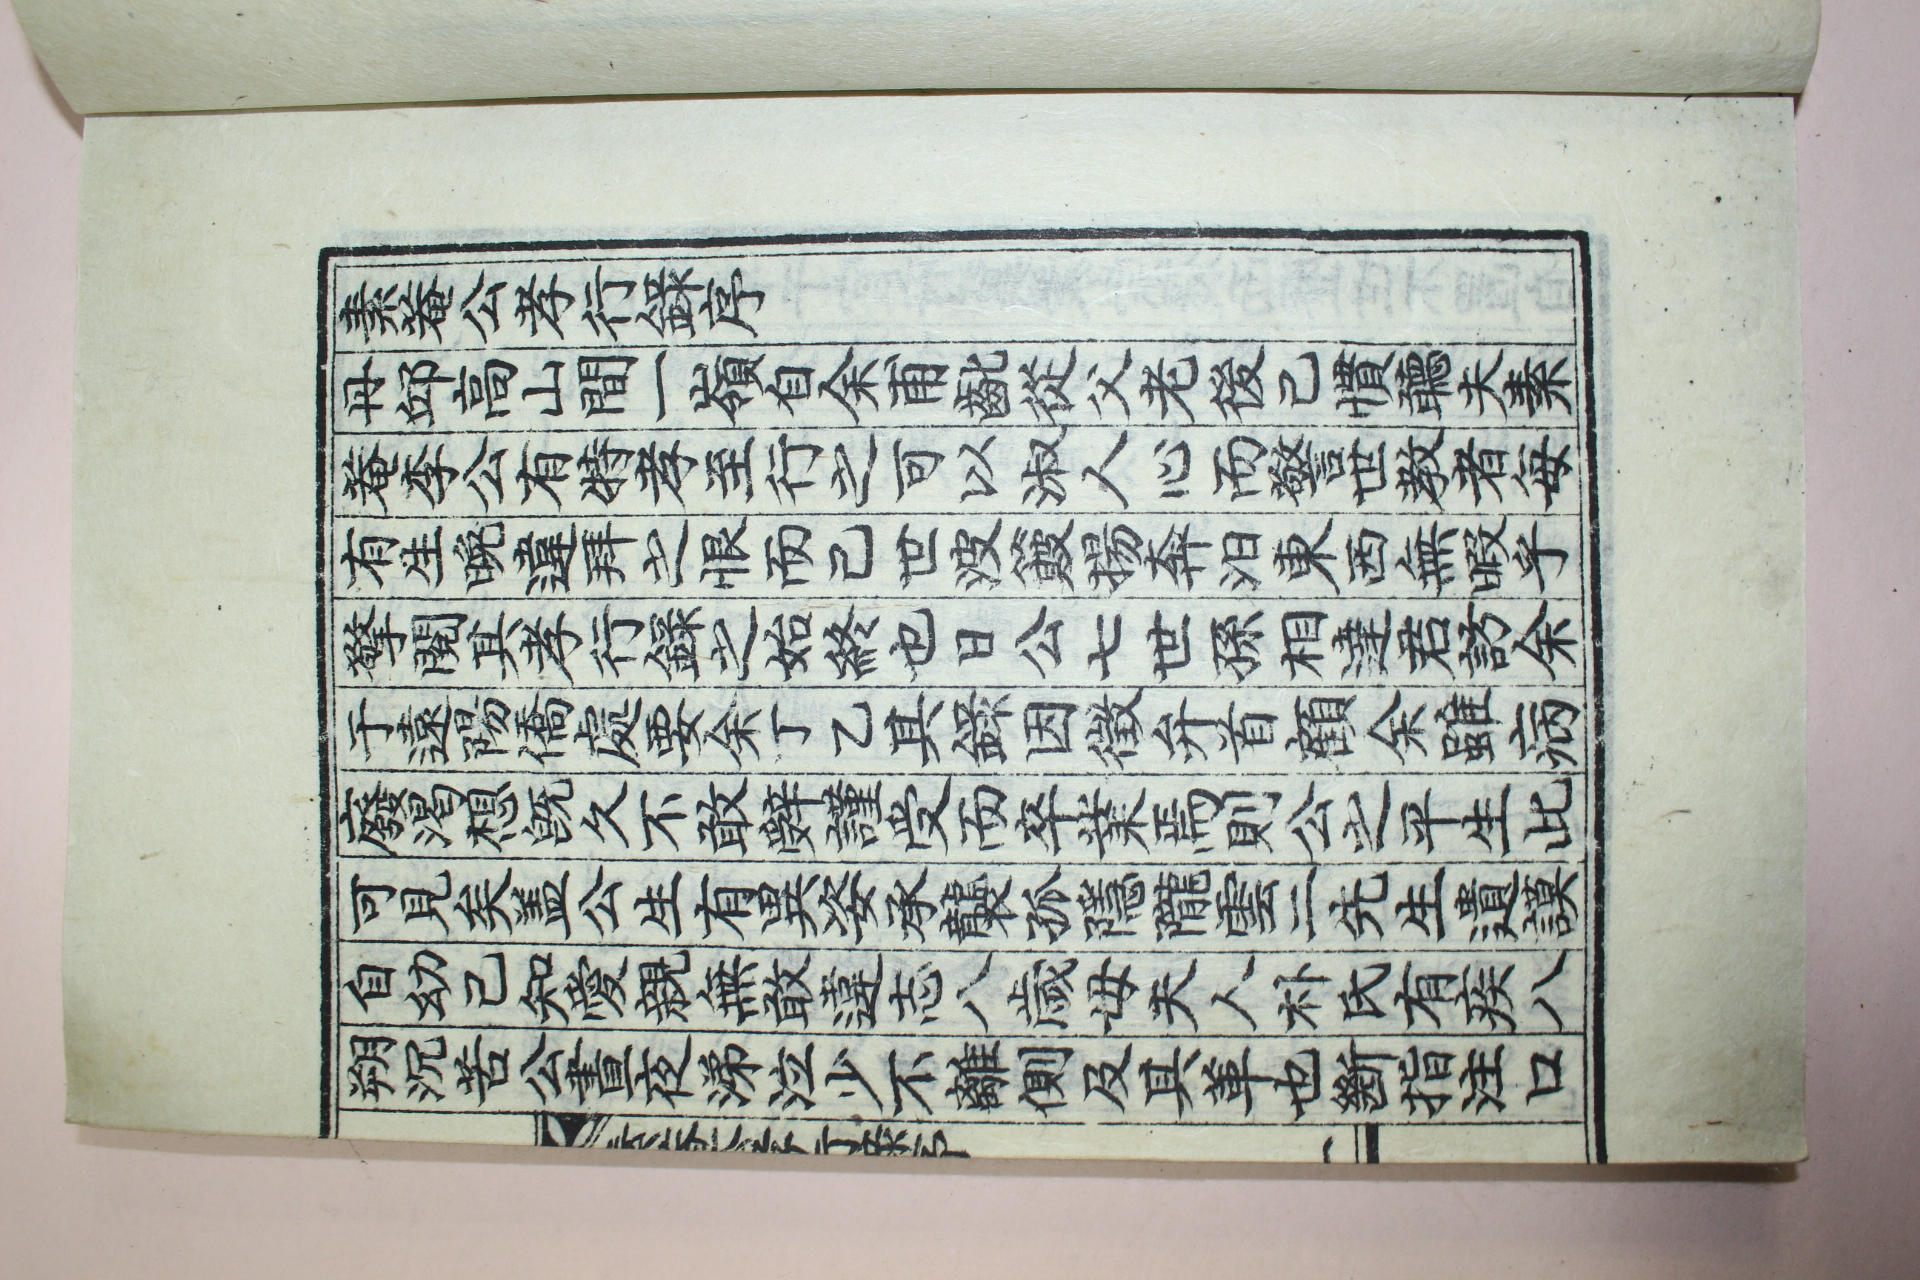 素菴公孝行錄序
丹邱高山間一嶺自余甫齔從父老後已慣聽夫素
菴李公有特孝至行之可以淑人心而警世敎者每
有生晚違拜之恨而已世波簸揚奔汨東西無暇乎
擎閱其孝行錄之始終也日公七世孫相達君訪余
于遠陽僑處要余丁乙其錄因徵弁首顧余雖病
廢渴想旣久不敢辭謹受而卒業焉則公之平生比
可見矣盖公生有異姿承襲孤隱龍雲二先生遺謨
自幼已知愛親無敢違志八歲母夫人朴氏有疾八
朔沉苦公晝夜涕泣少不離側及其革也斷指注口
素菴公孝行錄序 一